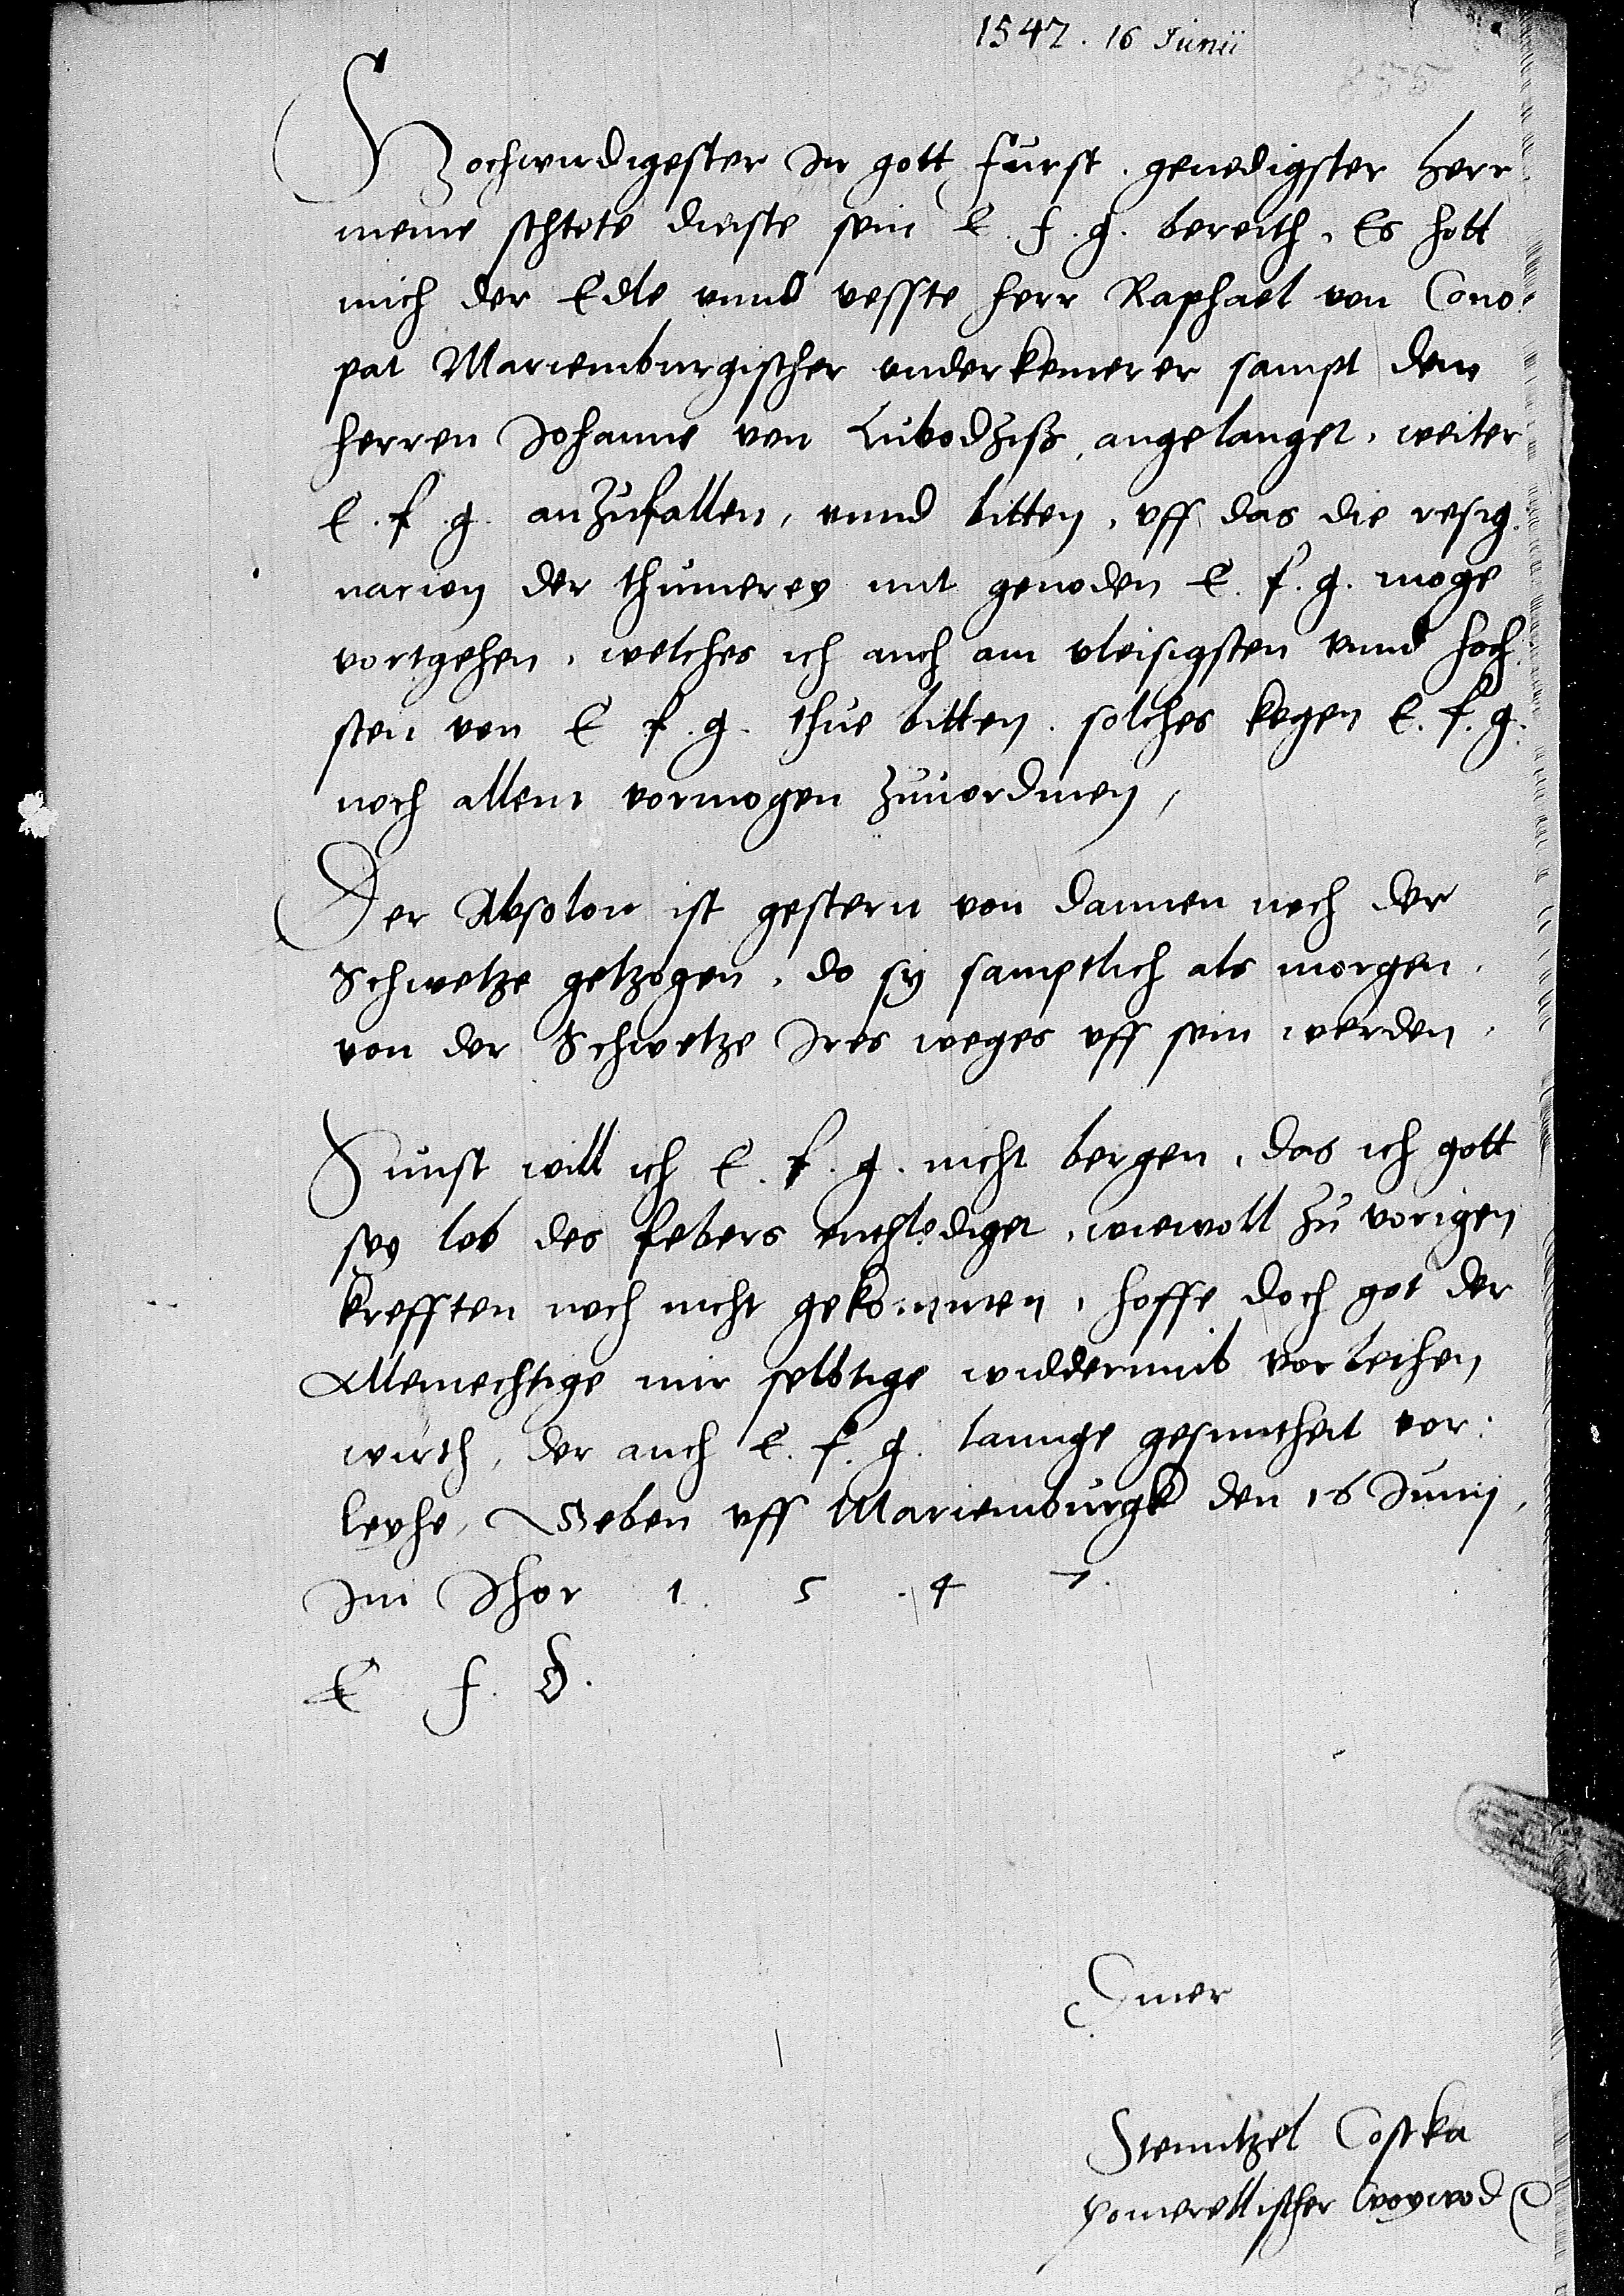 1547. 16 Junii
855
Hochwirdigester In gott furst. genedigster herr
meine schtete dinste sein E. f. g. bereith. Es hott
mich der Edle unnd vesste herr Raphael von Cono-
pat Mariemburgischer underkemerer sampt dem
herren Johanne von Lubodziß, angelanget, weiter
E. f. g. anzufallen, unnd bitten, uff das die resig-
nacion der thumerey mit genoden E. f. g. moge
vortgehen, welches ich auch am vleisigsten unnd hoch
sten von E f. g. thue bitten. solches kegen E. f. g.
noch allem vormogen zuuordinen,
Der Absolon ist gestern von dannen noch der
Schwetze getzogen, do sy samptlich als morgen
von der Schwetze Ires weges uff sein werden.
Sunst will ich E. f. g. nicht bergen, das ich gott
sey lob des febers enthlediget, wiewoll zu vorigen
krefften noch nicht gekommen, hoffe doch got der
Allemechtige mir selbtige widdermub vorleihen
wirth, der auch E. f. g. lannge gesuntheit vor-
leyhe, Geben uff Mariemburgk den 16 Junij,
Im Ihor 1. 5 .4 7.
E f. G.
Diner
Stentzel Costka
pomerellischer Woywod